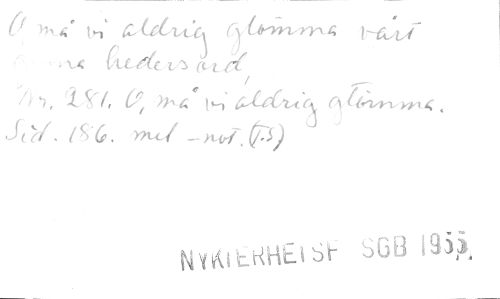 O, må vi aldrig glömma vårt
hedersord,
Nr. 281. O, må vi aldrig glömma.
Sid. 186. mel-not. (T.S)
NYKTERHETSF SGB 1955.